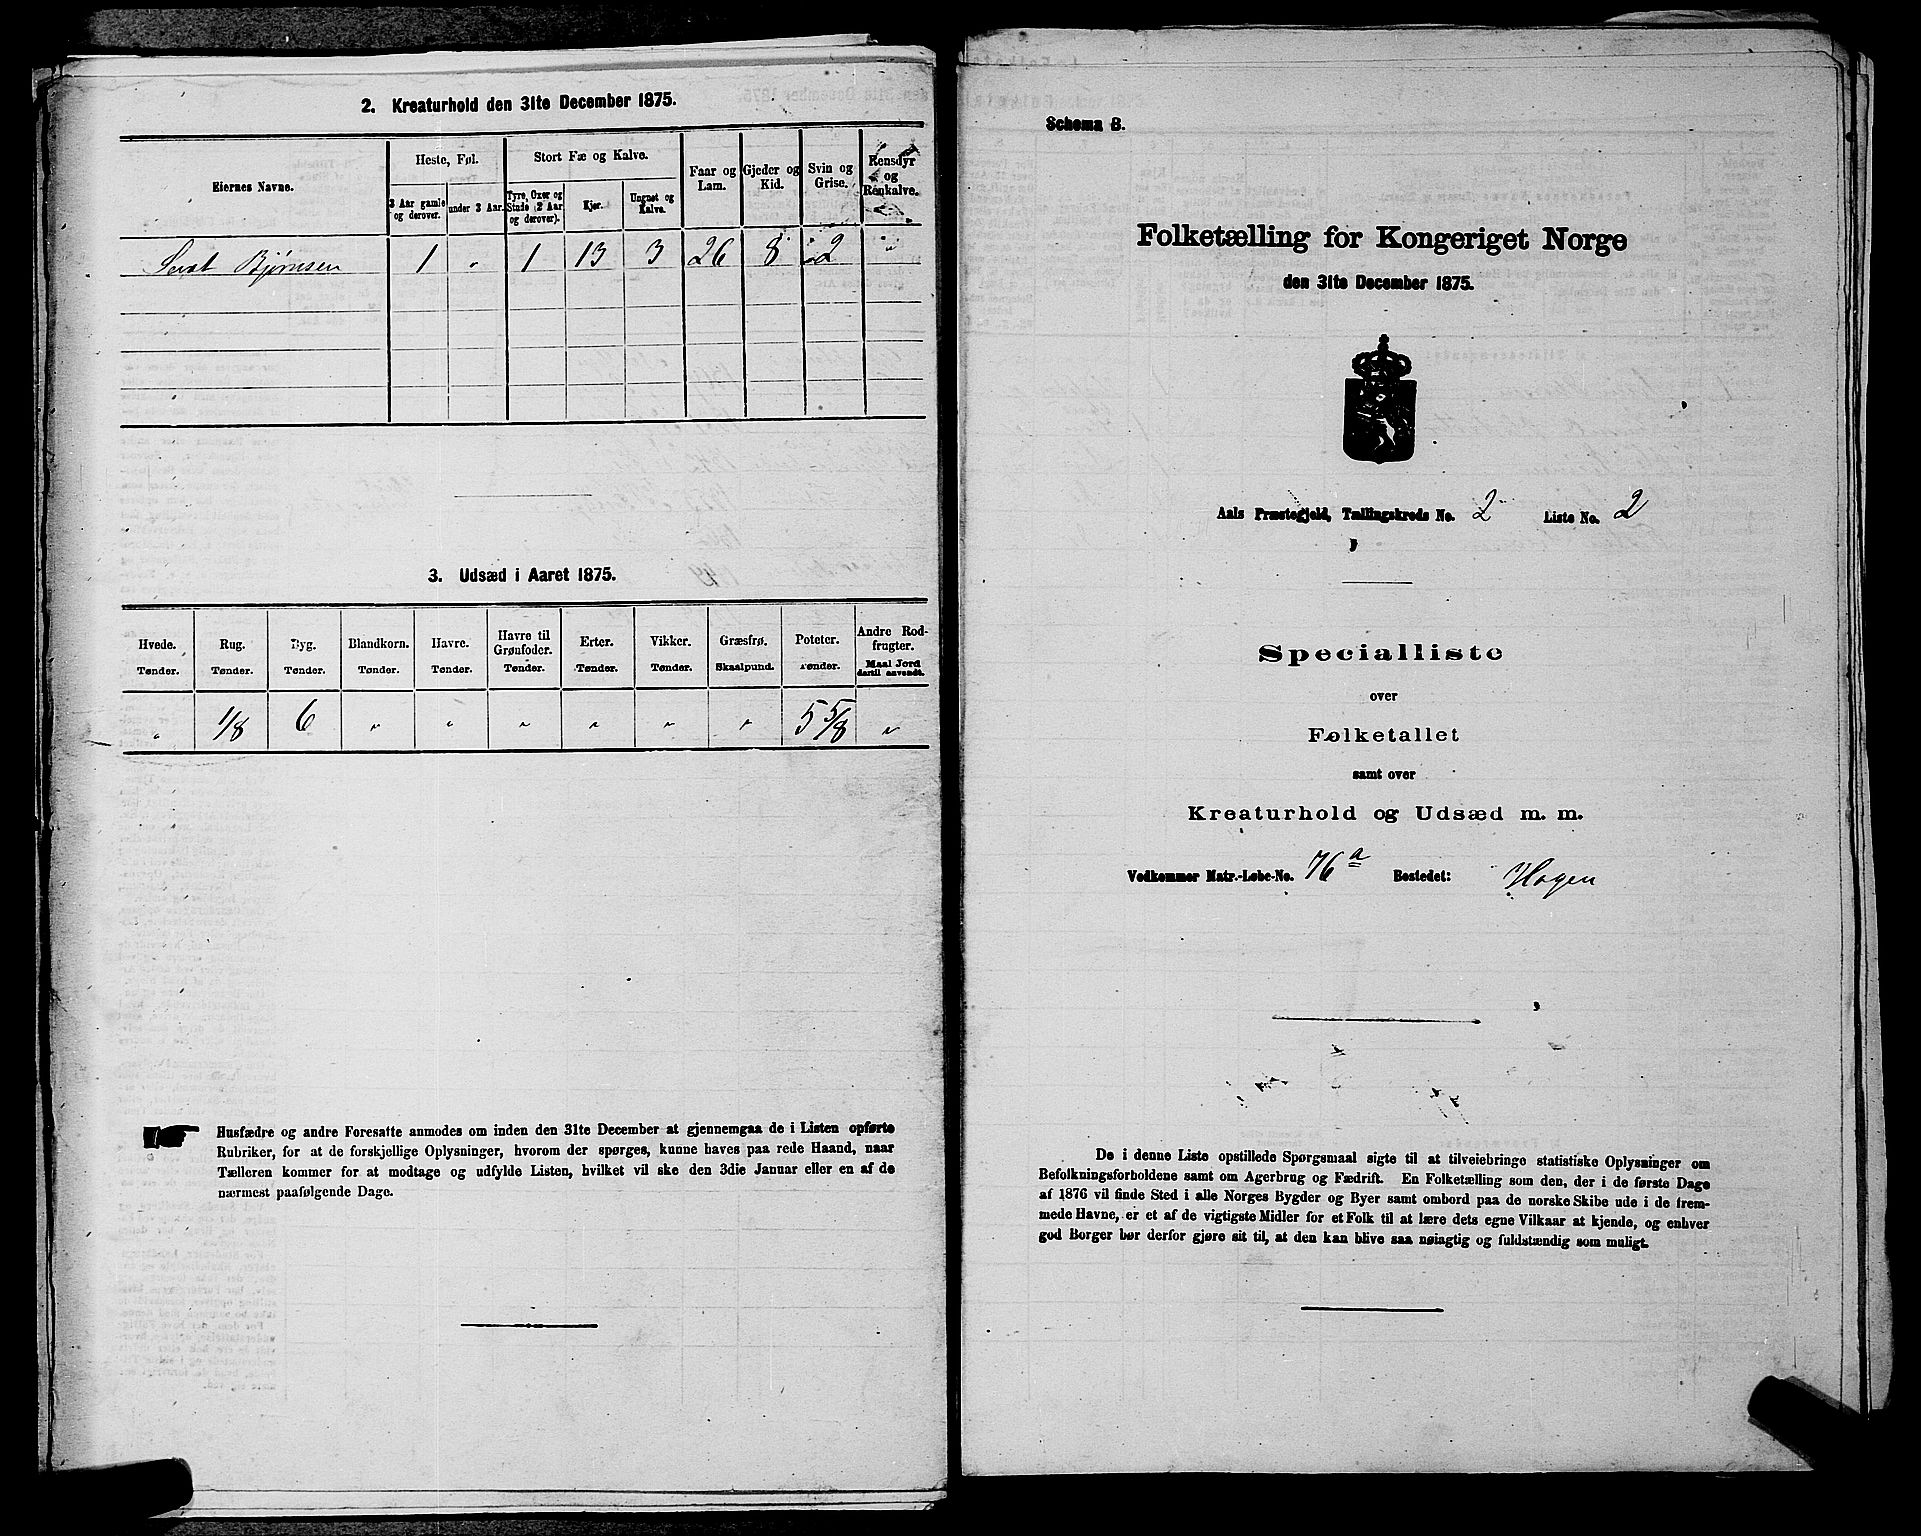 2. Kreaturhold den 31te December 1875.
Eiernes Navne.
Heste, Føl.
3 Aar gamle og derover.
under 3 Aar.
Stort Fæ og Kalve.
Tyre, Oxer og Stude (2 Aar og derover).
Kjør.
Ungnøt og Kalve.
Faar og Lam.
Gjeder og Kid.
Svin og Grise.
Rensdyr og Renkalve.
Bjørnsen 1 " 1 13 3 26 8 2 "
3. Udsæd i Aaret 1875.
Hvede. Rug. Byg. Blandkorn. Havre. Havre til Grønfoder. Erter. Vikker. Græsfrø. Poteter. Andre Rodfrugter.
Tønder. Tønder. Tønder. Tønder. Tønder. Tønder. Tønder. Tønder. Skaalpund. Tønder. Maal Jord dertil anvendt.
" 1/8 6 " " " " " " 5 5/8 "
Husfædre og andre Foresatte anmodes om inden den 31te December at gjennemgaa de i Listen opførte
Rubriker, for at de forskjellige Oplysninger, hvorom der spørges, kunne haves paa rede Haand, naar
Tælleren kommer for at modtage og udfylde Listen, hvilket vil ske den 3die Januar eller en af de
nærmest paafølgende Dage.
Schema B.
Folketælling for Kongeriget Norge
den 31te December 1875.
Aals Præstegjeld, Tællingskreds No. 2 Liste No. 2
Specialliste
over
Folketallet
samt over
Kreaturhold og Udsæd m. m.
Vedkommer Matr.-Løbe-No. 76a Bostedet: Hagen
De i denne Liste opstillede Spørgsmaal sigte til at tilveiebringe statistiske Oplysninger om
Befolkningsforholdene samt om Agerbrug og Fædrift. En Folketælling som den, der i de første Dage
af 1876 vil finde Sted i alle Norges Bygder og Byer samt ombord paa de norske Skibe ude i de frem-
mede Havne, er et af de vigtigste Midler for et Folk til at lære dets egne Vilkaar at kjende, og enhver
god Borger bør derfor gjøre sit til, at den kan blive saa nøiagtig og fuldstændig som muligt.